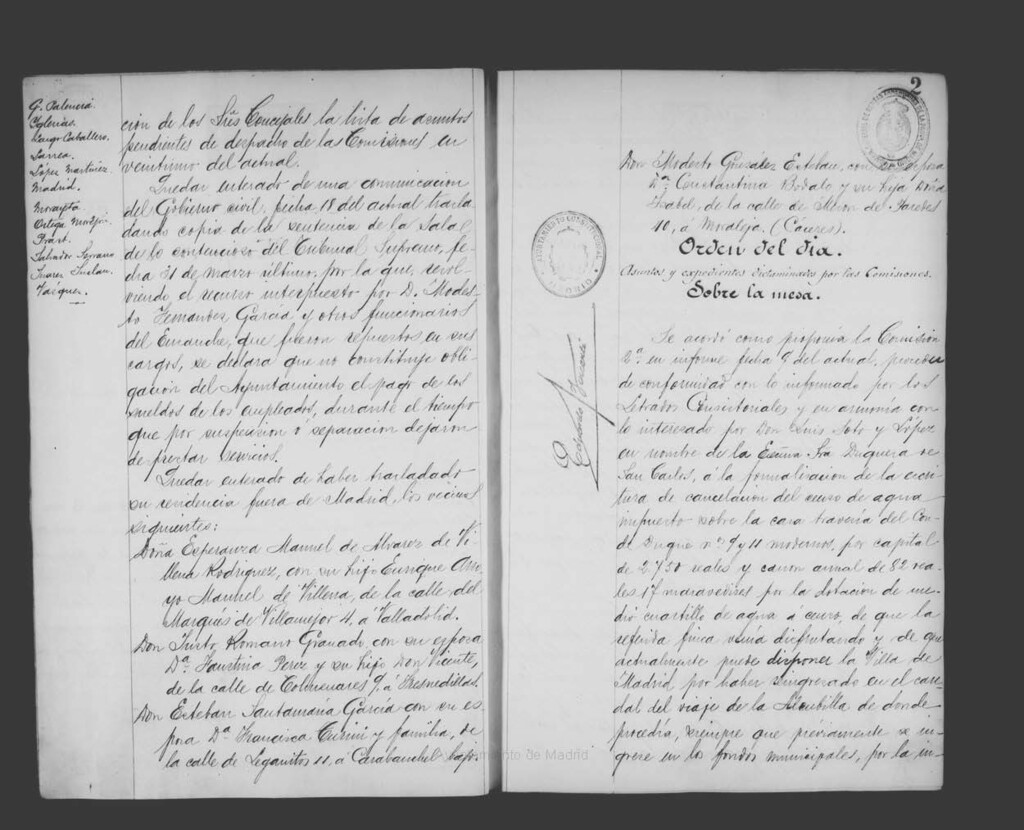 G. Palencia.
Yglesias.
Largo Caballero.
Larrea.
López Martínez.
Madrid.
Morayta
Ortega Morejón
Prast.
Salvador Serrano
Suarez Inclan.
Vazquez.
ción de los Sres Concejales la lista de asuntos
pendientes de despacho de las Comisiones en
veintiuno del actual.
Quedar enterado de una comunicación
del Gobierno civil, fecha 18 del actual trasla
dando copia de la sentencia de la Sala
de lo contencioso del Tribunal Supremo, fe-
cha 31 de marzo último, por la que, resol-
viendo el recurso interpuesto por D. Modes-
to Fernandez García y otros funcionarios
del Ensanche, que fueron repuestos en sus
cargos, se declara que no constituye obli-
gación del Ayuntamiento el pago de los
sueldos de los empleados, durante el tiempo
que por suspensión ó separación dejaron
de prestar servicios.
Quedar enterado de haber trasladado
su residencia fuera de Madrid, los vecinos
siguientes:
Doña Esperanza Manuel de Alvarez de Vi-
llena Rodriguez, con su hijo Enrique Arro-
yo Manuel de Villena, de la calle del
Marqués de Villamejor 4, á Valladolid.
Don Justo Romano Granado, con su esposa
Da. Faustina Perez y su hijo Don Vicente,
de la calle de Colmenares 9, á Fresnedillas.
Don Esteban Santamaría García con su es
posa Da Francisca y familia, de
la calle de Leganitos 11, á Carabanchel bajo.
2
AYUNTAMIENTO CONSTITUCIONAL
MADRID
Don Modesto González Esteban, con su esposa
Da. Constantina Bodalo y su hija Doña
Isabel, de la calle de Meson de Paredes
10, á Moraleja. (Cáceres).
Orden del día.
Asuntos y expedientes dictaminados por las Comisiones.
Sobre la mesa.
Se acordó como proponía la Comisión
2a. en informe fecha 9 del actual, proceder
de conformidad con lo informado por los
Letrados Consistoriales y en armonía con
lo interesado por Don Luis Soto y López
en nombre de la Excma Sra Duquesa de
San Carlos, á la formalización de la escri
tura de cancelación del censo de agua
impuesto sobre la casa travesía del Con-
de Duque no. 9 y 11 modernos, por capital
de 2.750 reales y canon anual de 82 rea-
les 17 maravedises por la dotación de me-
dio cuartillo de agua á censo, de que la
referida finca venía disfrutando y de que
actualmente puede disponer la Villa de
Madrid, por haber ingresado en el cau-
dal del viaje de la Alcubilla de donde
procedía, siempre que previamente se in-
grese en los fondos municipales, por la in-
Ayuntamiento de Madrid